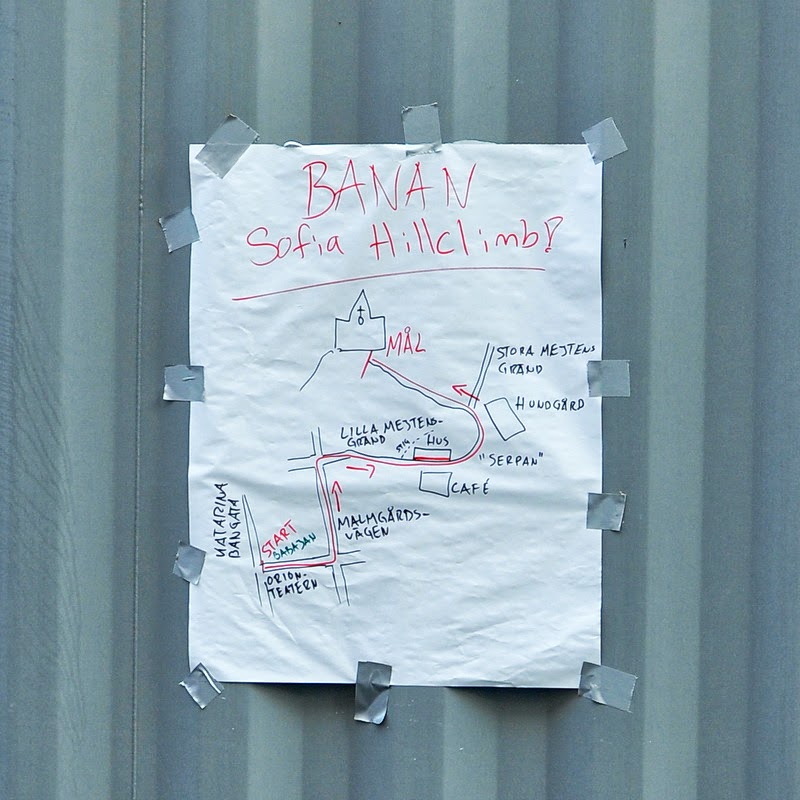 BANAN
Sofia Hillclimb!
MÅL
STORA MEJTENS
GRÄND
HUNDGÅRD
LILLA MEJTENS-
GRÄND
STIG
HUS
"SERPAN"
CAFÉ
KATARINA
BANGATA
MALMGÅRDS-
VÄGEN
START
BABAJAN
ORION-
TEATERN